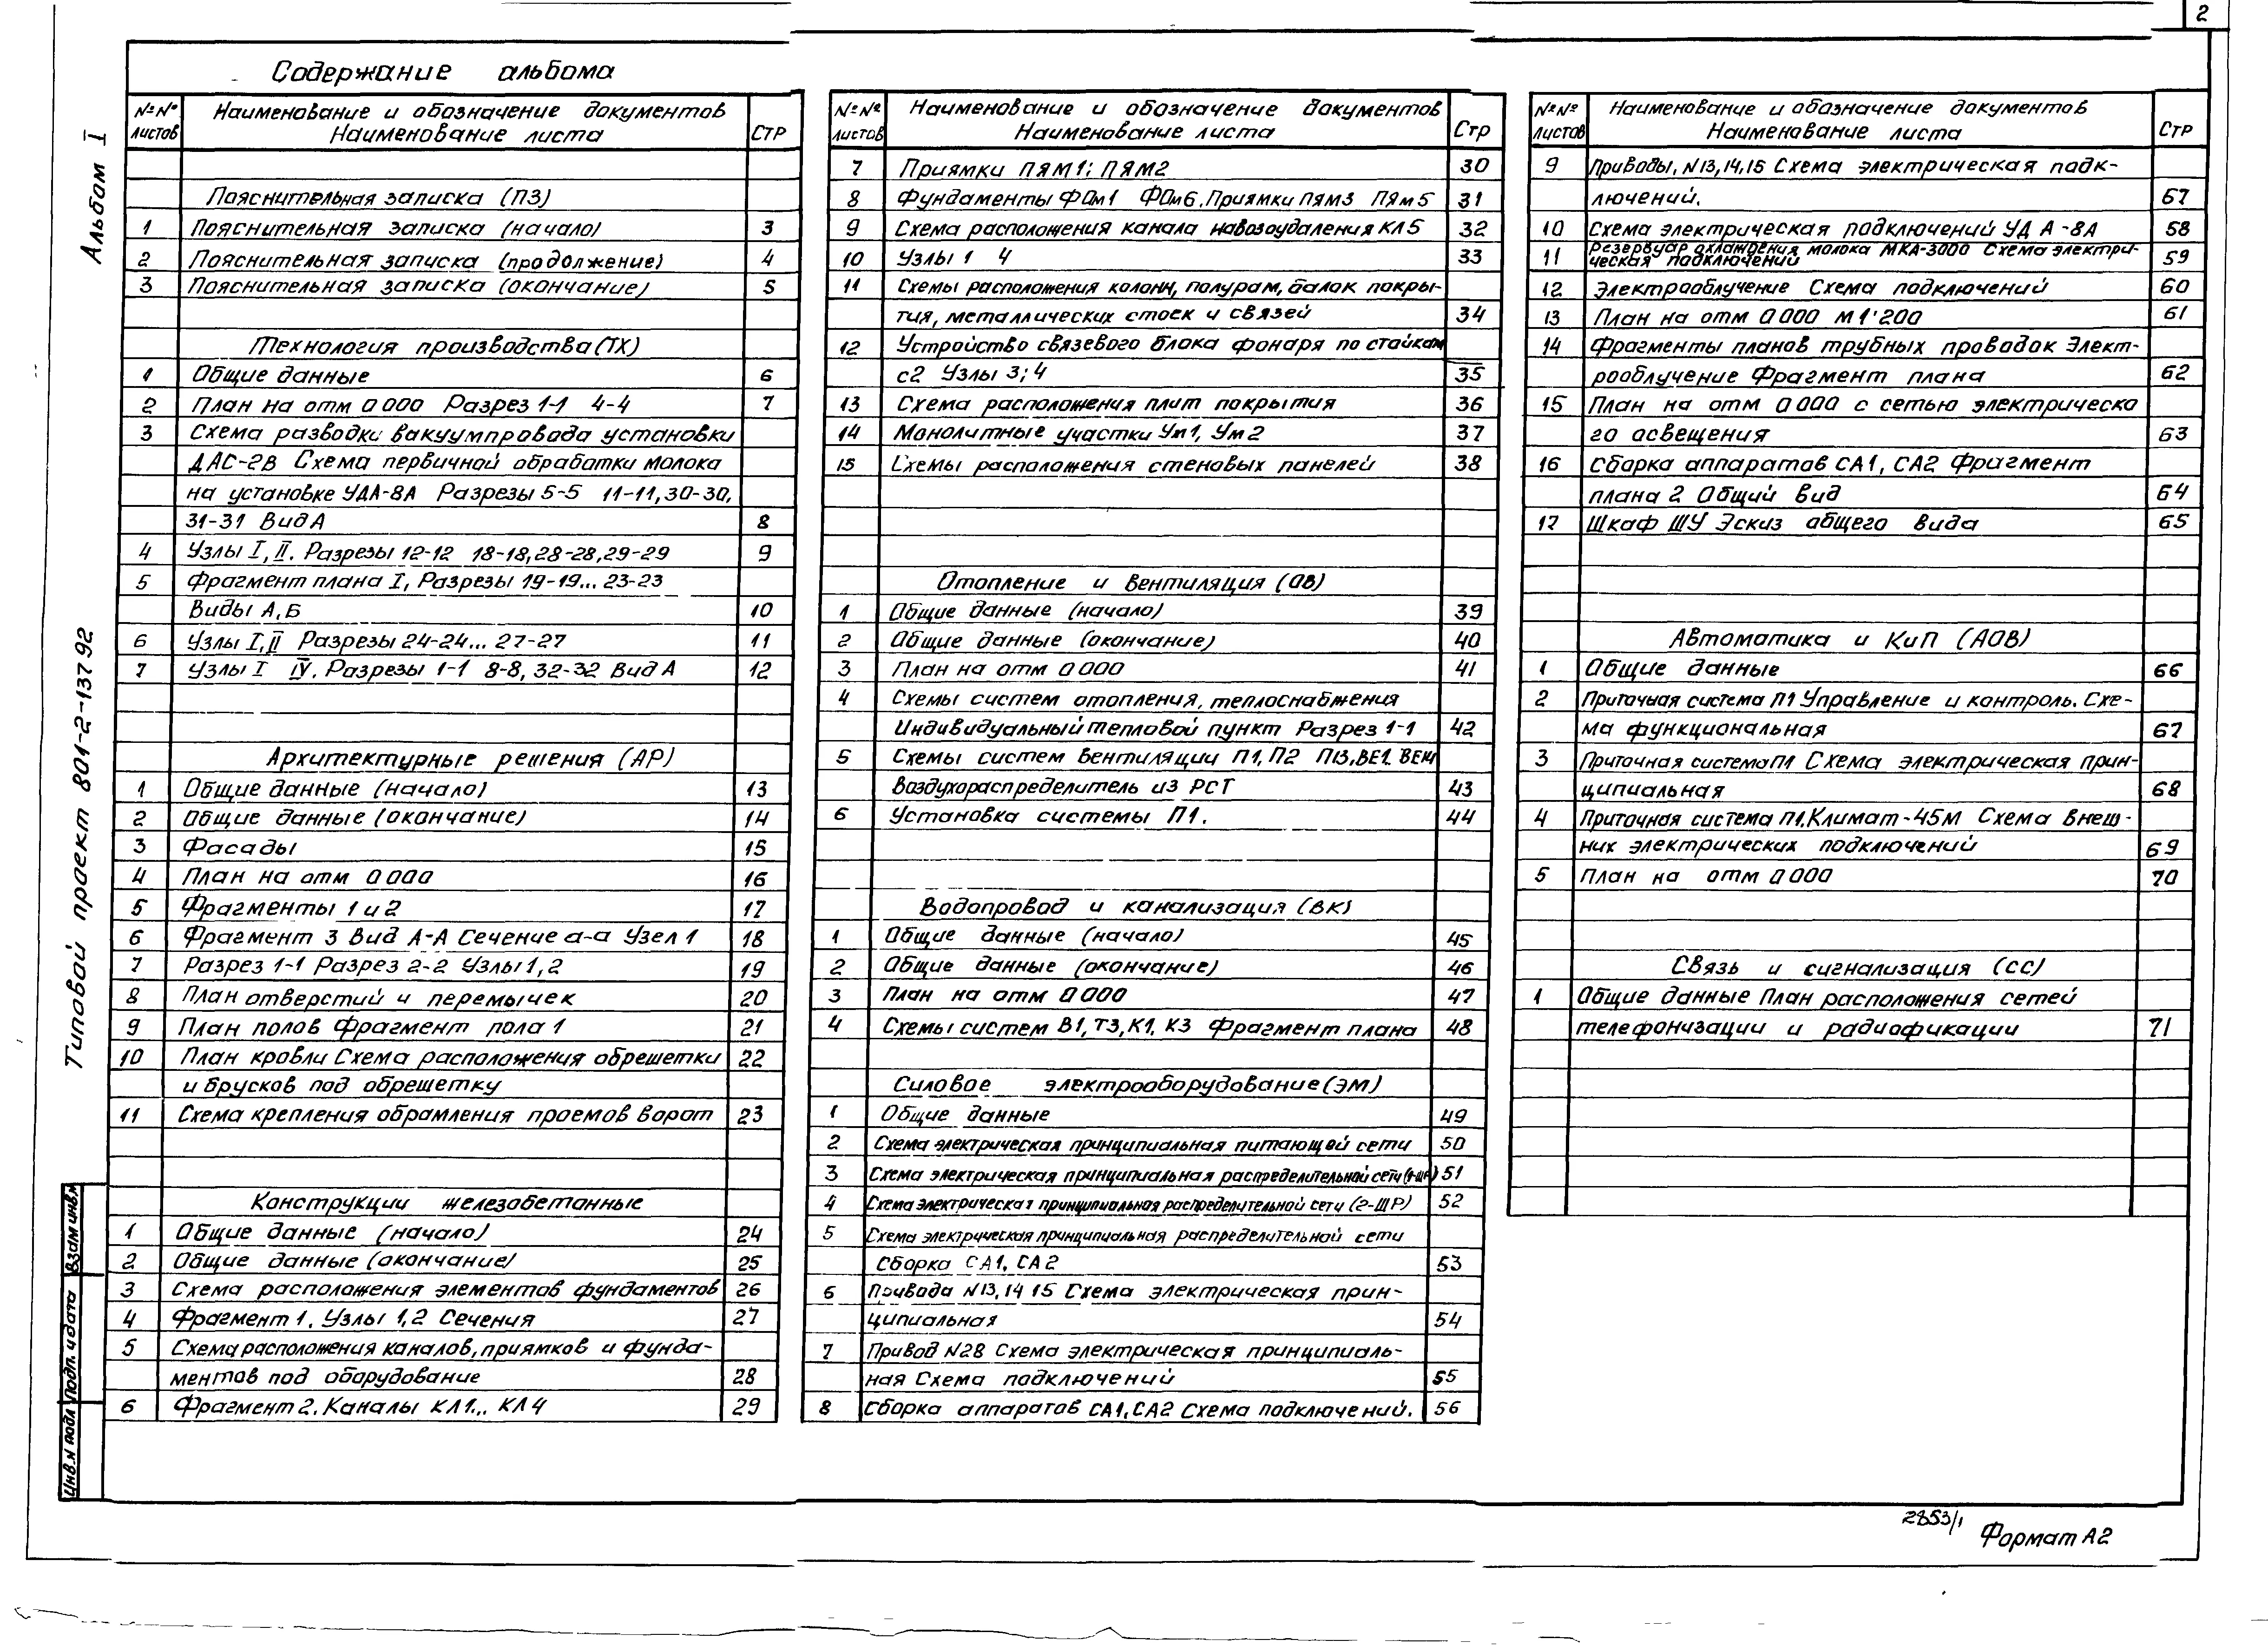 2
Содержание альбома
Альбом I
Типовой проект 801-2-137 92
№№ листов Наименование и обозначение документов Наименование листа Стр
Пояснительная записка (ПЗ)
1 Пояснительная записка (начало) 3
2 Пояснительная записка (продолжение) 4
3 Пояснительная записка (окончание) 5
Технология производства (ТХ)
1 Общие данные 6
2 План на отм 0 000 Разрез 1-1 4-4 7
3 Схема разводки вакуумпровода установки
ДАС-2В Схема первичной обработки молока
на установке УДА-8А Разрезы 5-5 11-11, 30-30,
31-31 Вид А 8
4 Узлы I, II. Разрезы 12-12 18-18, 28-28, 29-29 9
5 Фрагмент плана I, Разрезы 19-19... 23-23
Виды А, Б 10
6 Узлы I, II Разрезы 24-24... 27-27 11
7 Узлы I IV. Разрезы 1-1 8-8, 32-32 Вид А 12
Архитектурные решения (АР)
1 Общие данные (начало) 13
2 Общие данные (окончание) 14
3 Фасады 15
4 План на отм 0 000 16
5 Фрагменты 1 и 2 17
6 Фрагмент 3 Вид А-А Сечение а-а Узел 1 18
7 Разрез 1-1 Разрез 2-2 Узлы 1, 2 19
8 План отверстий и перемычек 20
9 План полов Фрагмент пола 1 21
10 План кровли Схема расположения обрешетки 22
и брусков под обрешетку
11 Схема крепления обрамления проемов ворот 23
Конструкции железобетонные
1 Общие данные (начало) 24
2 Общие данные (окончание) 25
3 Схема расположения элементов фундаментов 26
4 Фрагмент 1. Узлы 1, 2 Сечения 27
5 Схема расположения каналов, приямков и фунда-
ментов под оборудование 28
6 Фрагмент 2. Каналы КЛ1... КЛ4 29
№№ листов Наименование и обозначение документов Наименование листа Стр
7 Приямки ПЯМ1; ПЯМ2 30
8 Фундаменты ФОм1 ФОм6. Приямки ПЯм3 ПЯм5 31
9 Схема расположения канала навозоудаления КЛ5 32
10 Узлы 1 4 33
11 Схемы расположения колонн, полурам, балок покры-
тия, металлических стоек и связей 34
12 Устройство связевого блока фонаря по стойкам
с2 Узлы 3; 4 35
13 Схема расположения плит покрытия 36
14 Монолитные участки Ум1, Ум2 37
15 Схемы расположения стеновых панелей 38
Отопление и вентиляция (ОВ)
1 Общие данные (начало) 39
2 Общие данные (окончание) 40
3 План на отм 0 000 41
4 Схемы систем отопления, теплоснабжения
Индивидуальный тепловой пункт Разрез 1-1 42
5 Схемы систем вентиляции П1, П2 П13, ВЕ1. ВЕ14
Воздухораспределитель из РСТ 43
6 Установка системы П1. 44
Водопровод и канализация (ВК)
1 Общие данные (начало) 45
2 Общие данные (окончание) 46
3 План на отм 0 000 47
4 Схемы систем В1, Т3, К1, К3 Фрагмент плана 48
Силовое электрооборудование (ЭМ)
1 Общие данные 49
2 Схема электрическая принципиальная питающей сети 50
3 Схема электрическая принципиальная распределительной сети (1-ШР) 51
4 Схема электрическая принципиальная распределительной сети (2-ШР) 52
5 Схема электрическая принципиальная распределительной сети
Сборка СА1, СА2 53
6 Привода N13, 14 15 Схема электрическая прин-
ципиальная 54
7 Привод N28 Схема электрическая принципиаль-
ная Схема подключений 55
8 Сборка аппаратов СА1, СА2 Схема подключений. 56
№№ листов Наименование и обозначение документов Наименование листа Стр
9 Приводы, N13, 14, 15 Схема электрическая подк-
лючений. 57
10 Схема электрическая подключений УДА-8А 58
11 Резервуар охлаждения молока МКА-3000 Схема электри-
ческая подключений 59
12 Электрооблучение Схема подключений 60
13 План на отм 0 000 М1:200 61
14 Фрагменты планов трубных проводок Элект-
рооблучение Фрагмент плана 62
15 План на отм 0 000 с сетью электрическо
го освещения 63
16 Сборка аппаратов СА1, СА2 Фрагмент
плана 2 Общий вид 64
17 Шкаф ШУ Эскиз общего вида 65
Автоматика и КиП (АОВ)
1 Общие данные 66
2 Приточная система П1 Управление и контроль. Схе-
ма функциональная 67
3 Приточная система П1 Схема электрическая прин-
ципиальная 68
4 Приточная система П1. Климат-45М Схема внеш-
них электрических подключений 69
5 План на отм 0 000 70
Связь и сигнализация (СС)
1 Общие данные План расположения сетей
телефонизации и радиофикации 71
Взам инв.N
Подп. и дата
Инв. N подл
2853/1
Формат А2